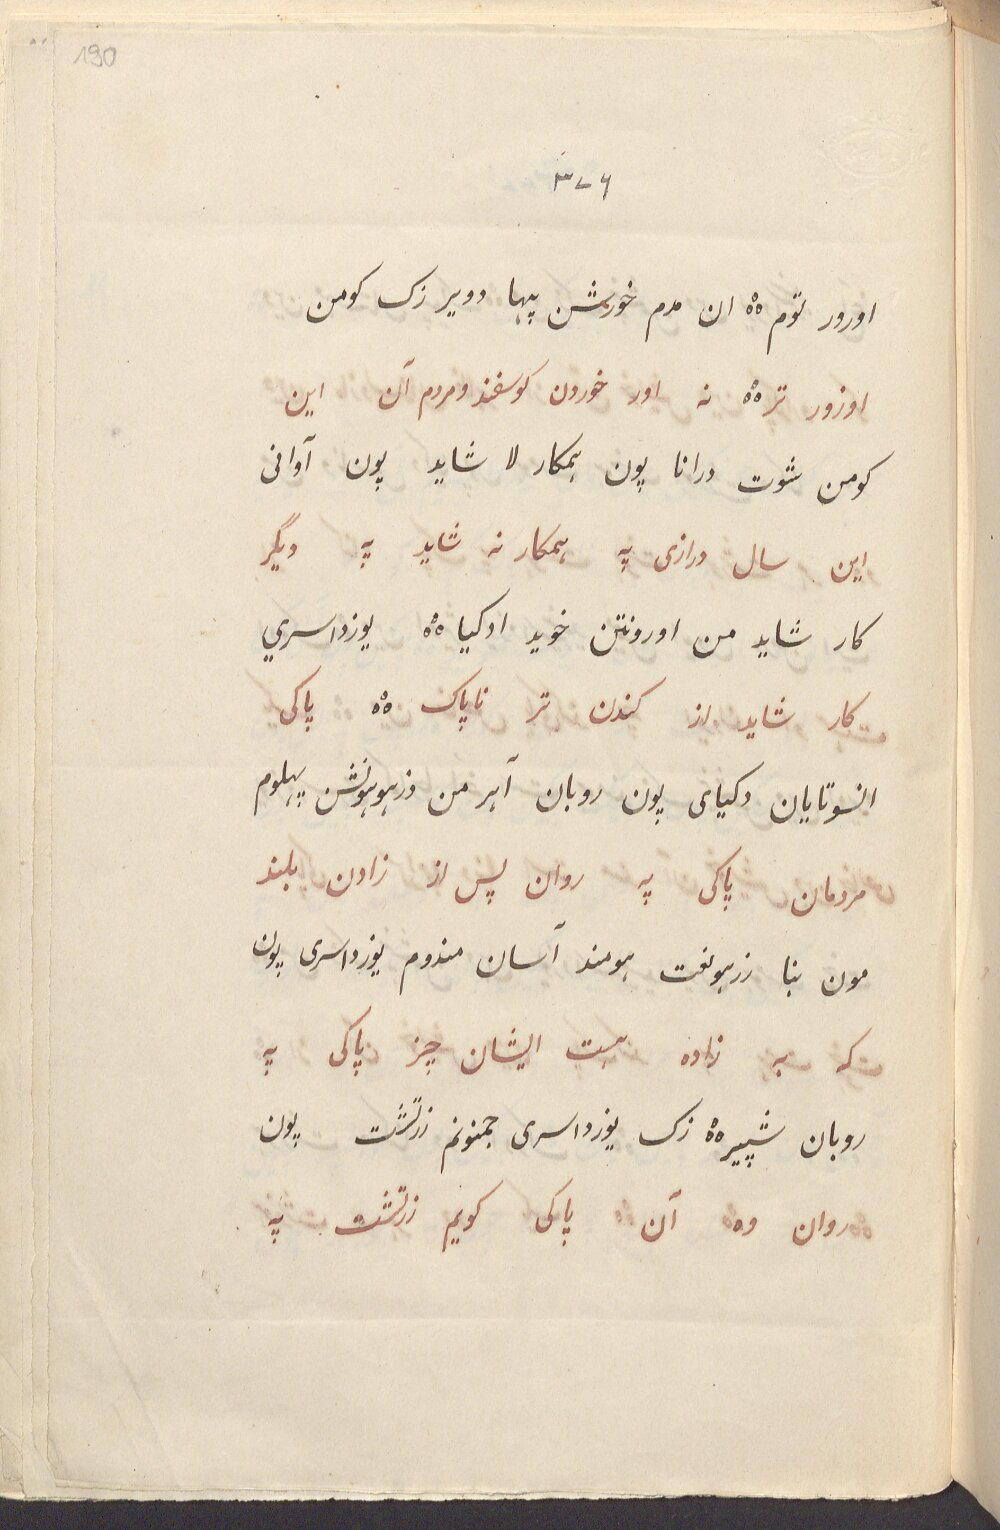 190
۳۷۶
اورور توم ۀ ان مدم خورشن پیها دویر زک کومن
اوزور تر ۀ نه اور خوردن کوسفند و مردم آن این
کومن شوت درانا پون همکار لا شاید پون آوانی
این سال درازی په همکار نه شاید په دیگر
کار شاید من اورونتن خوید ادکیا ۀ یوزداسري
کار شاید از کندن تر ناپاک ۀ پاکی
انسوتایان دکیای پون روبان آهر من وزهوهونشن پهلوم
مردمان پاکی په روان پس از زادن بلند
مون بنا زرهونت هومند آسان مندوم یوزداسری پون
که به زاده هست ایشان چیز پاکی په
روبان شپیر ۀ زک یوزداسری جمنونم زرتشت پون
روان وه آن پاکی کویم زرتشت په